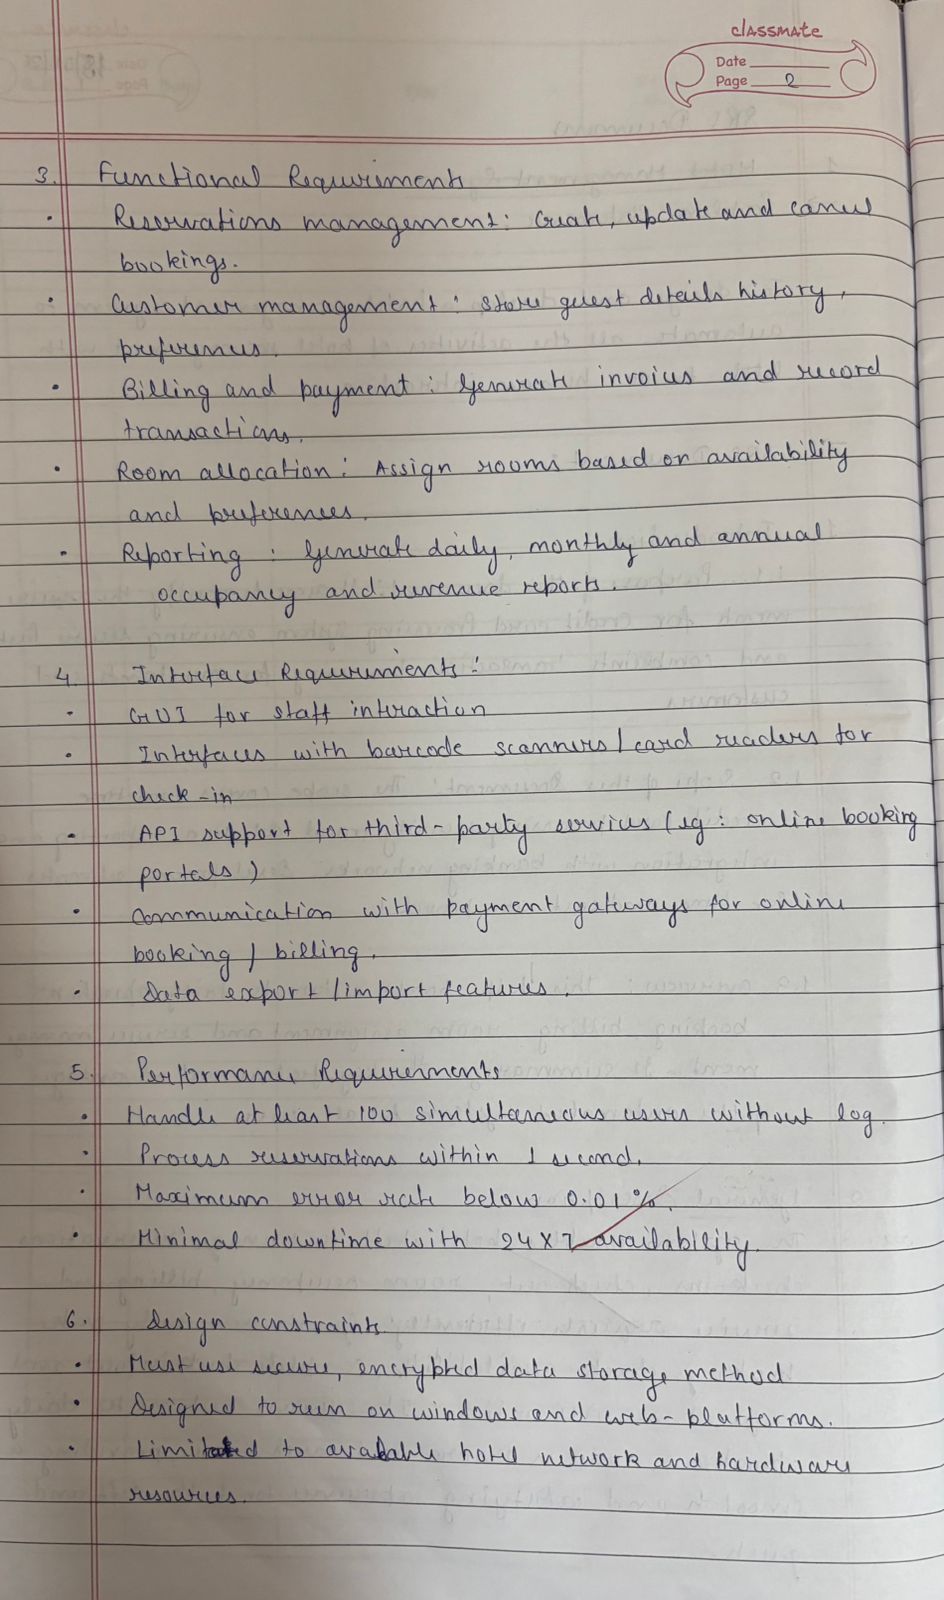 classmate
Date
Page 2
3. Functional Requirements
• Reservations management: Create, update and cancel
bookings.
• Customer management: Store guest details history,
preferences.
• Billing and payment: Generate invoices and record
transactions.
• Room allocation: Assign rooms based on availability
and preferences.
• Reporting: Generate daily, monthly and annual
occupancy and revenue reports.
4. Interface Requirements:
• GUI for staff interaction
• Interfaces with barcode scanners/card readers for
check-in
• API support for third-party services (eg: online booking
portals)
• Communication with payment gateways for online
booking / billing.
• Data export/import features.
5. Performance Requirements
• Handle at least 100 simultaneous users without log.
• Process reservations within 1 second.
• Maximum error rate below 0.01%.
• Minimal downtime with 24x7 availability.
6. Design constraints
• Must use secure, encrypted data storage method
• Designed to run on windows and web-platforms.
• Limited to available hotel network and hardware
resources.